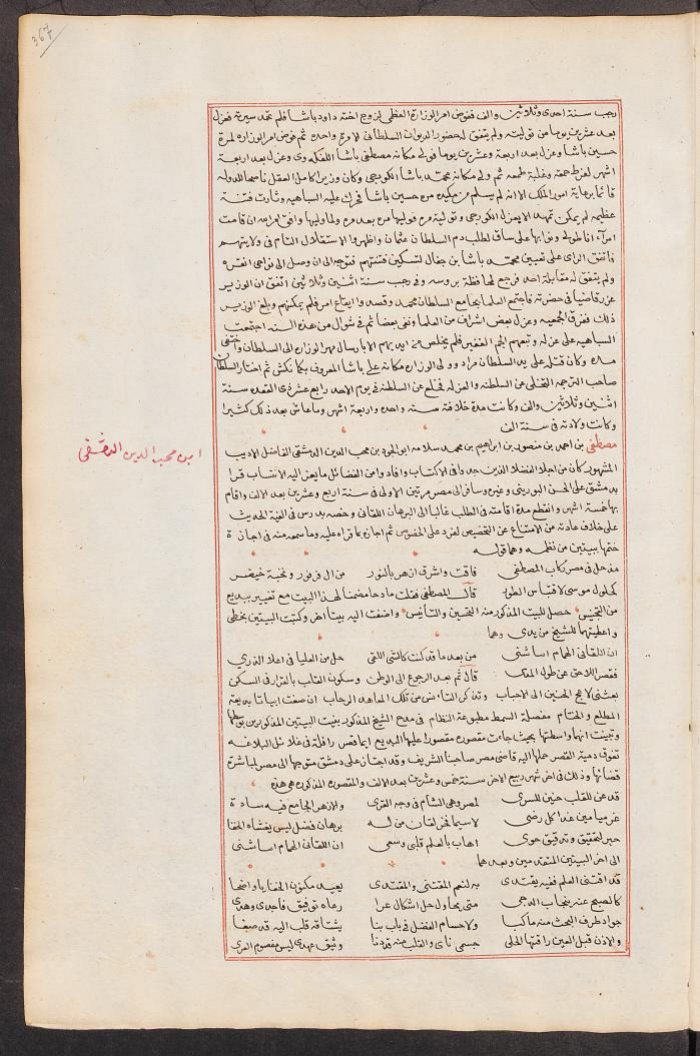 367
رجب سنة احدى وثلاثين والف فنوض امر الوزارة العظمى لزوج اخته داود باشا فلم تحمد سيرته فعزل
بعد عشرين يوما من توليته ولم يتفق له حضور الديوان السلطانى لا ومرة واحدة ثم فوض امر الوزاره لمرة
حسين باشا وعزل بعد اربعة وعشرين يوما فولى مكانه مصطفى باشا اللفكه وى وعزل بعد اربعة
اشهر لفرط حمقه وغلبة طمعه ثم ولى مكانه محمد باشا الكورجى وكان وزيرا كامل العقل ناصحا للدوله
قائما برعاية امور الملك الا انه لم يسلم من مكيده مره حسين باشا فحرك عليه السباهيه وثارت فتنة
عظيمه لم يمكن تمهيدها الا بعزل الكورجى وتولية مره فوليها مره بعد مره ولما وليها وافق امر الله ان قامت
امرآء اناطولى ونوابها على ساق لطلب دم السلطان عثمان واظهروا الاستقلال التام فى ولايتهم
فاتفق الراى على تعيين محمد باشا بن جغال لتسكين فتنتهم فتوجه الى ان وصل الى نواحى انقره
ولم يتفق له مقابلة احد فرجع لمحافظة بروسه وفى رجب سنة اثنين وثلاثين اتفق ان الوزير
عزر قاضيا فى حضرته فاجتمع العلما بجامع السلطان محمد وقصدوا ايقاع امر فلم يمكنهم وبلغ الوزير
ذلك ففرق الجمعيه وعزل بعض اشراف من العلما ونفى بعضا ثم فى شوال من هذه السنه اجتمعت
السباهيه على عزله وتبعهم الجم الغفير فلم يتخلص من ايديهم الا بارسال مهر الوزاره الى السلطان واختفى
مده وكان قتله على يد السلطان مراد وولى الوزاره مكانه على باشا المعروف بكمانكش ثم اختار السلطان
صاحب الترجمه التخلى عن السلطنه والعزله فخلع عن السلطنه فى يوم الاحد رابع عشر ذى القعده سنة
اثنين وثلاثين والف وكانت مدة خلافته سنه واحده واربعة اشهر وما عاش بعد ذلك كثيرا
وكانت ولادته فى سنة الف
ابن محب الدين الدمشقى
مصطفى بن احمد بن منصور بن ابراهيم بن محمد سلامه ابو الجود بن محب الدين الدمشقى الفاضل الاديب
المشهور كان من اجلا الفضلا الذين جدوا فى الاكتساب وافاد وا من الفضائل ما يعز اليه الانتساب قرا
بدمشق على الحسن البورينى وغيره وسافر الى مصر مرتين الاولى فى سنة اربع وعشرين بعد الالف واقام
بها خمسة اشهر وانقطع مدة اقامته فى الطلب غالبا الى البرهان اللقانى وخصه بدرس فى الفية الحديث
على خلاف عادته من الامتناع عن التخصيص لفرد على الخصوص ثم اجازه بما قراه عليه وما سمعه منه فى اجازة
ختمها ببيتين من نظمه وهما قوله
مذ حل فى مصر ركاب المصطفى فاقت واشرق ازهر بالنور من ال فرفور ونخبة
كحلول موسى لاقتباس الطور قال المصطفى فقلت مادحا مضمنا لهذا البيت مع تغيير بديع
من التجنيس حصل للبيت المذكور منه التحسين والتانيس واضفت اليه بيتا اخر وكتبت البيتين بخطى
واعطيتها للشيخ من يدى وهما
ان اللقانى الهمام اسا شنى من بعد ما قد كنت كالشى اللقى حل من العليا فى اعلا الذرى
فقصر اللاحق عن طول المدى قال ثم بعد الرجوع الى الوطن وسكون القلب بالقرار فى السكن
بعثنى لاعج الحنين الى الاحباب وتذكر التاءنس من تلك المعاهد الرحاب ان صغت ابياتا بديعة
المطلع والختام مفصلة السمط مطبوعة النظام فى مدح الشيخ المذكور بنيت البيتين المذكورين بوسطها
وتبينت انها واسطتها بحيث جاءت مقصوره مقصورا عليها البديع ايما قصر رافلة فى غلائل البلاغه
تفوق دمية القصر حملها اليه قاضى مصر صاحبنا الشريف وقد اجتاز على دمشق متوجها الى مصر لمباشرة
قضائها وذلك فى اخر شهر ربيع الاخر سنة خمس وعشرين بعد الالف والمقصوره المذكوره هى هذه
قد عن للقلب حنين للسرى لمصر وهى الشام فى وجه الثرى والازهر الجامع فيه سادة
غر ميامين غدا كل رضى لا سيما فخر لقان من له برهان فضل ليس يغشاه الخفا
حبر لتحقيق وتدقيق حوى اهاب بالعلم قلبى وسمى ان اللقانى الهمام اسا شنى
الى اخر البيتين المتقدمين وبعدهما
قد اقتنى العلم ففيه يقتدى به لنعم المقتنى والمقتدى يعيد مكنون الخفايا واضحا
كالصبح عنه ينجاب الدجى متى يحاول حل اشكال عرا رماه توفيق فاجدى وهدى
جواد طرف البحث منه ما كبا ولا حسام الفضل فى باب نبا يشتاقه قلب اليه قد صغا
والاذن قبل العين راقتها الحلى جسمى ناى والقلب منه قد دنا وثيق عهدى ليس مفصوم العرى